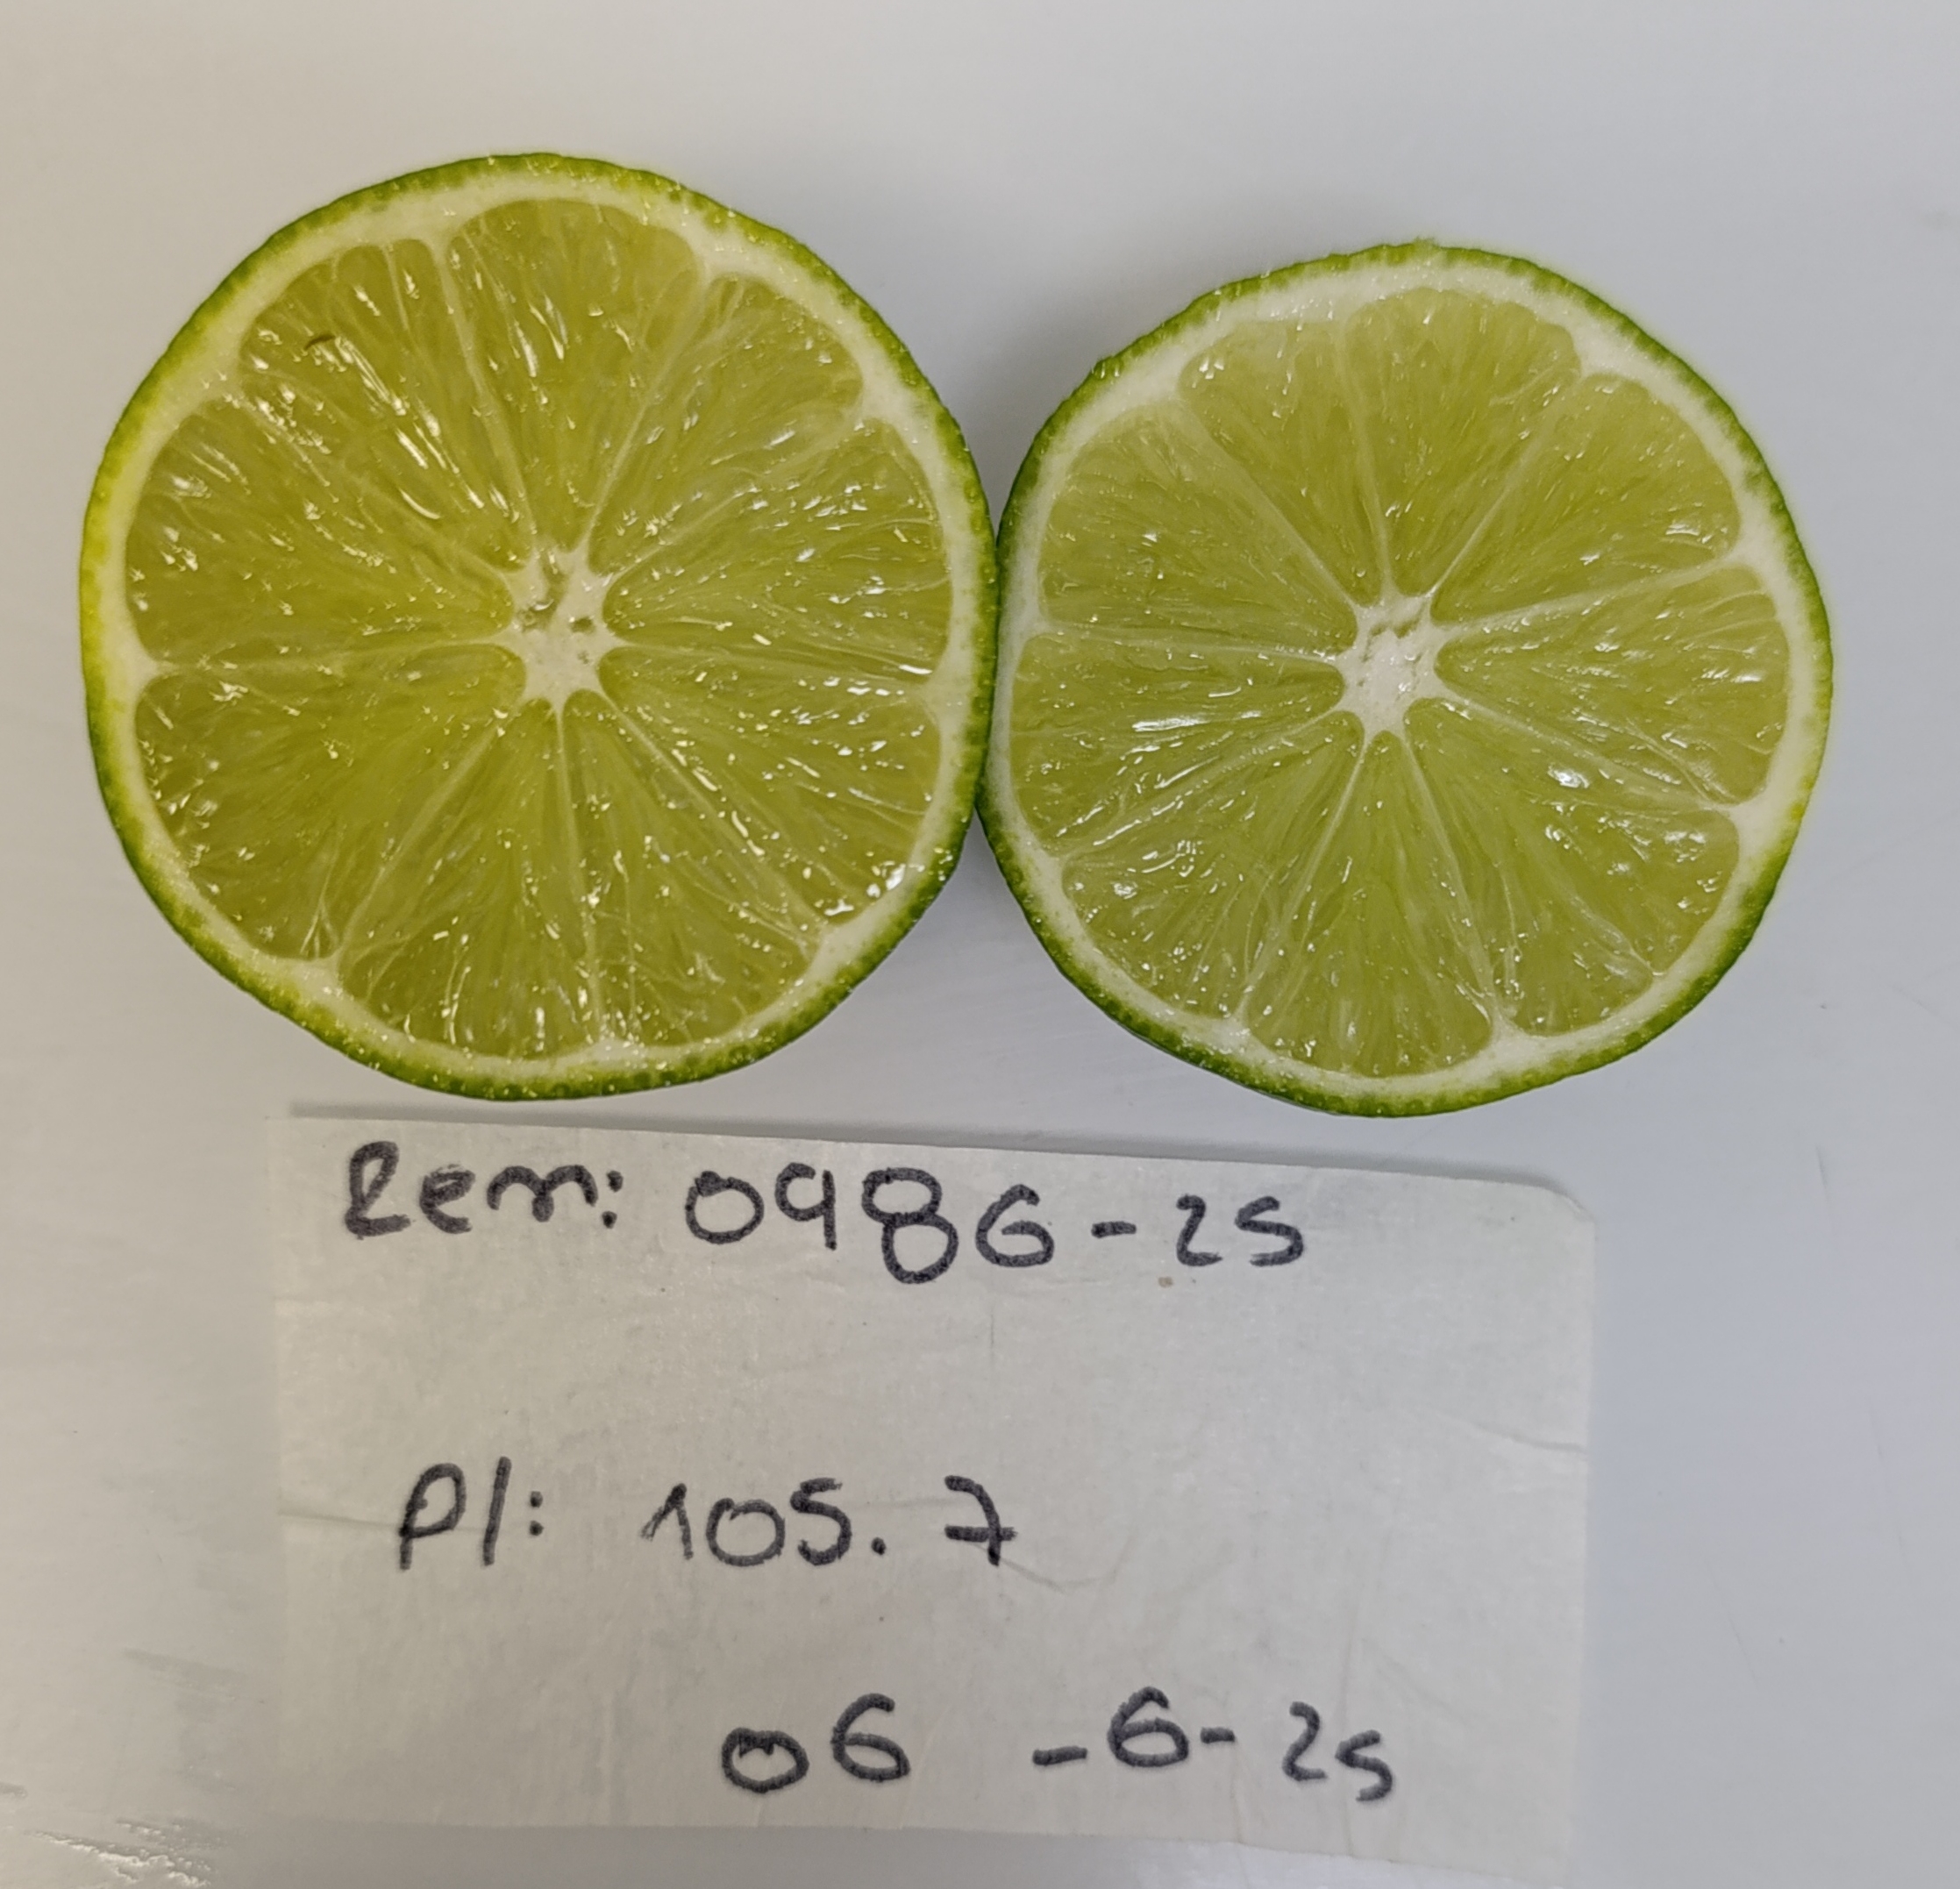 Rem: 0986-25
Pl: 105.7
06 -6-25